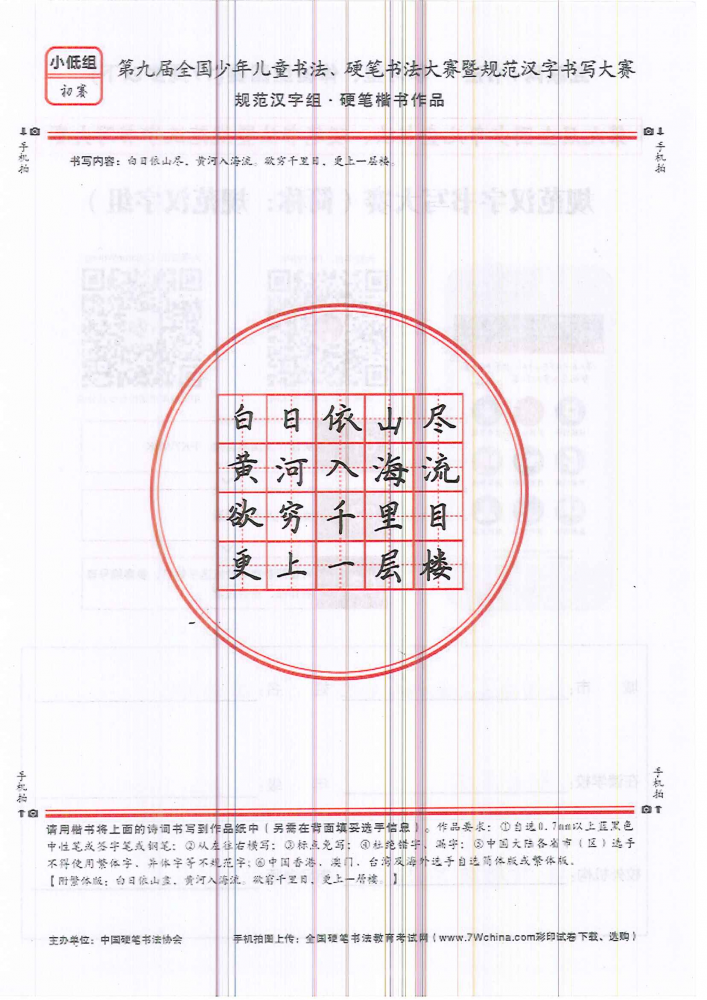 小低组
初赛
第九届全国少年儿童书法、硬笔书法大赛暨规范汉字书写大赛
规范汉字组·硬笔楷书作品
手机拍
手机拍
书写内容：白日依山尽，黄河入海流。欲穷千里目，更上一层楼。
白日依山尽
黄河入海流
欲穷千里目
更上一层楼
手机拍
手机拍
请用楷书将上面的诗词书写到作品纸中（另需在背面填妥选手信息）。作品要求：①自选0.7mm以上蓝黑色
中性笔或签字笔或钢笔；②从左往右横写；③标点免写；④杜绝错字、漏字；⑤中国大陆各省市（区）选手
不得使用繁体字、异体字等不规范字；⑥中国香港、澳门、台湾及海外选手自选简体版或繁体版。
【附繁体版：白日依山盡，黃河入海流。欲窮千里目，更上一層樓。】
主办单位：中国硬笔书法协会
手机拍图上传：全国硬笔书法教育考试网（www.7Wchina.com彩印试卷下载、选购）